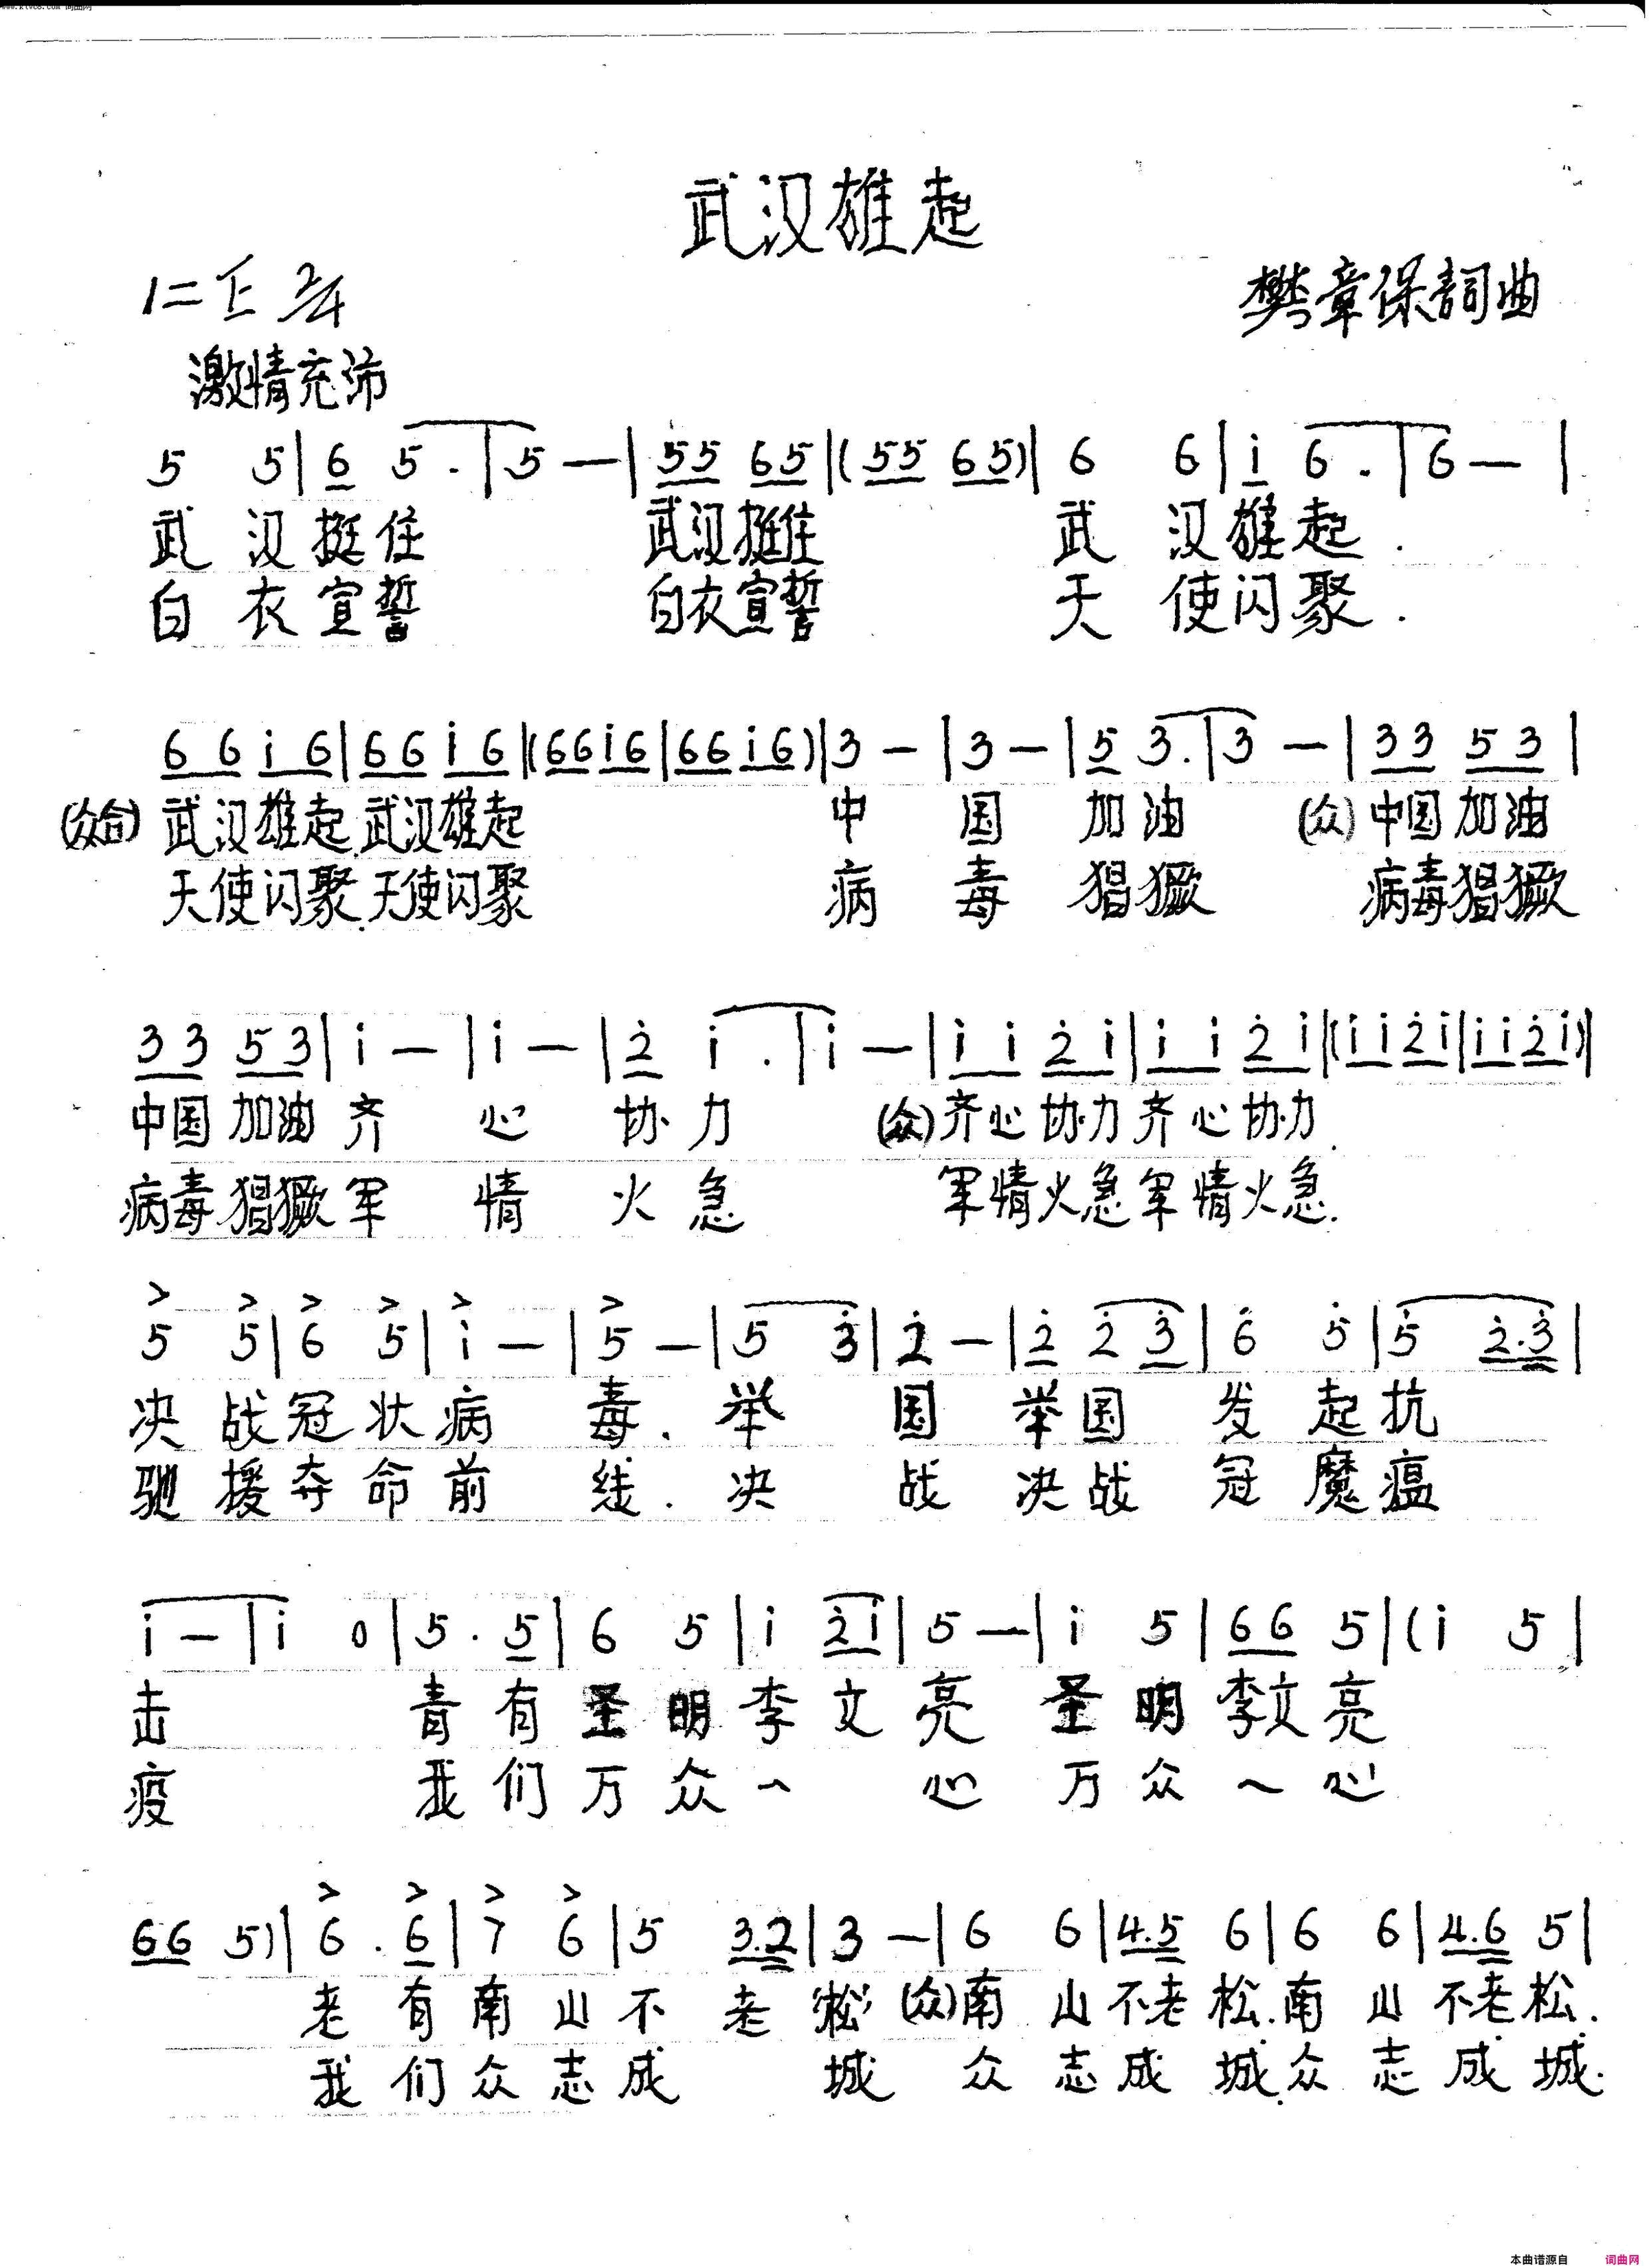 www.ktvc8.com 词曲网
武汉雄起
1=E 2/4
樊章保詞曲
激情充沛
5 5|6 5.|5—|55 65|(55 65)|6 6|i 6.|6—|
武汉挺住 武汉挺住 武汉雄起.
白衣宣誓 白衣宣誓 天使闪聚.
66i6|66i6|(66i6|66i6)|3—|3—|5 3.|3—|33 53|
(众合)武汉雄起.武汉雄起 中国加油 (众)中国加油
天使闪聚.天使闪聚 病毒猖獗 病毒猖獗
33 53|i—|i—|2 i.|i—|ii2i|ii2i|(ii2i|ii2i)|
中国加油齐心协力 (众)齐心协力齐心协力.
病毒猖獗军情火急 军情火急军情火急.
5 5|6 5|i—|5—|5 3|2—|2 2 3|6 5|5 2.3|
决战冠状病毒.举国举国发起抗
驰援夺命前线.决战决战冠魔瘟
i—|i 0|5.5|6 5|i 2i|5—|i 5|66 5|(i 5|
击 青有圣明李文亮 圣明李文亮
疫 我们万众一心 万众一心
66 5)|6.6|7 6|5 3.2|3—|6 6|4.5 6|6 6|4.6 5|
老有南山不老松(众)南山不老松.南山不老松.
我们众志成城 众志成城.众志成城.
本曲谱源自 词曲网